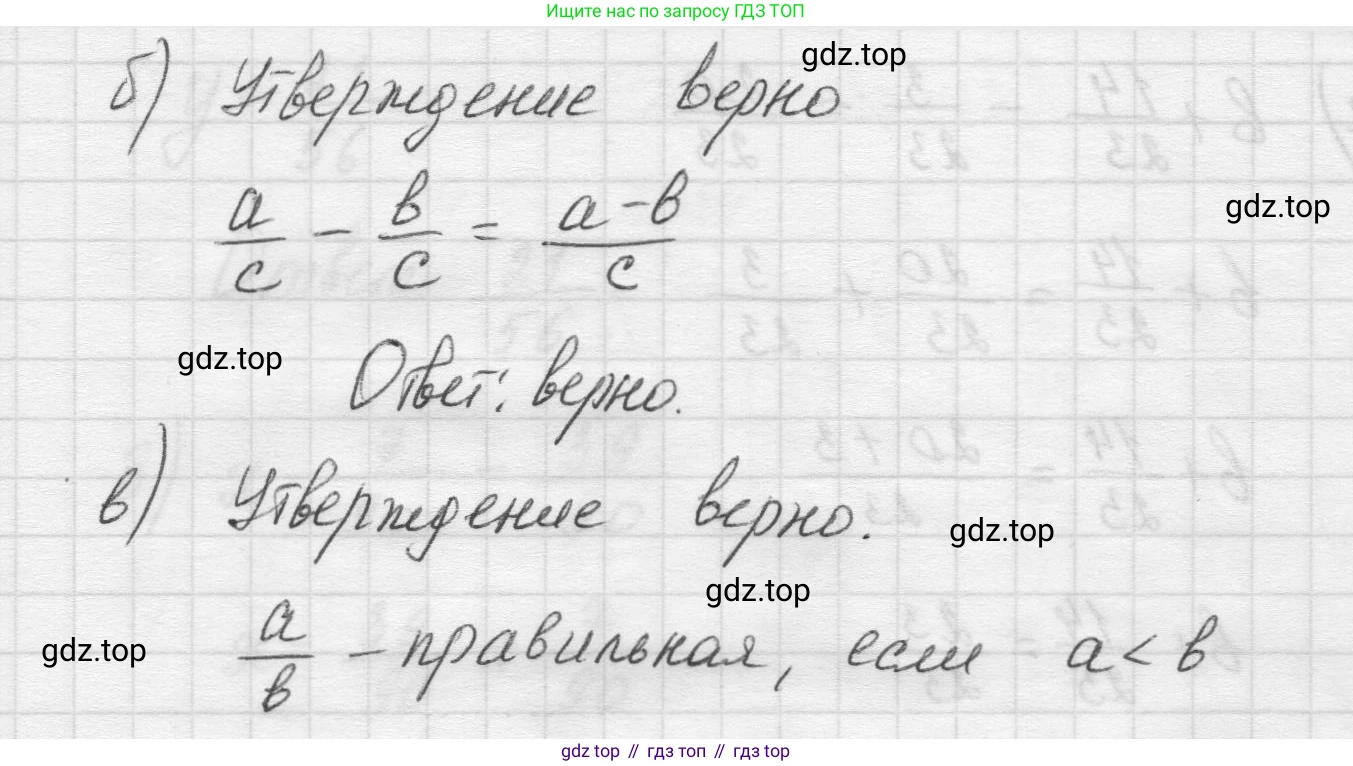 Ищите нас по запросу ГДЗ ТОП
б) Утверждение верно
gdz.top
a/c - в/c = a-в/c
gdz.top
gdz.top
Ответ: верно.
в) Утверждение верно.
gdz.top
gdz.top
gdz.top
a/в - правильная, если a < в
gdz top // гдз топ // gdz top